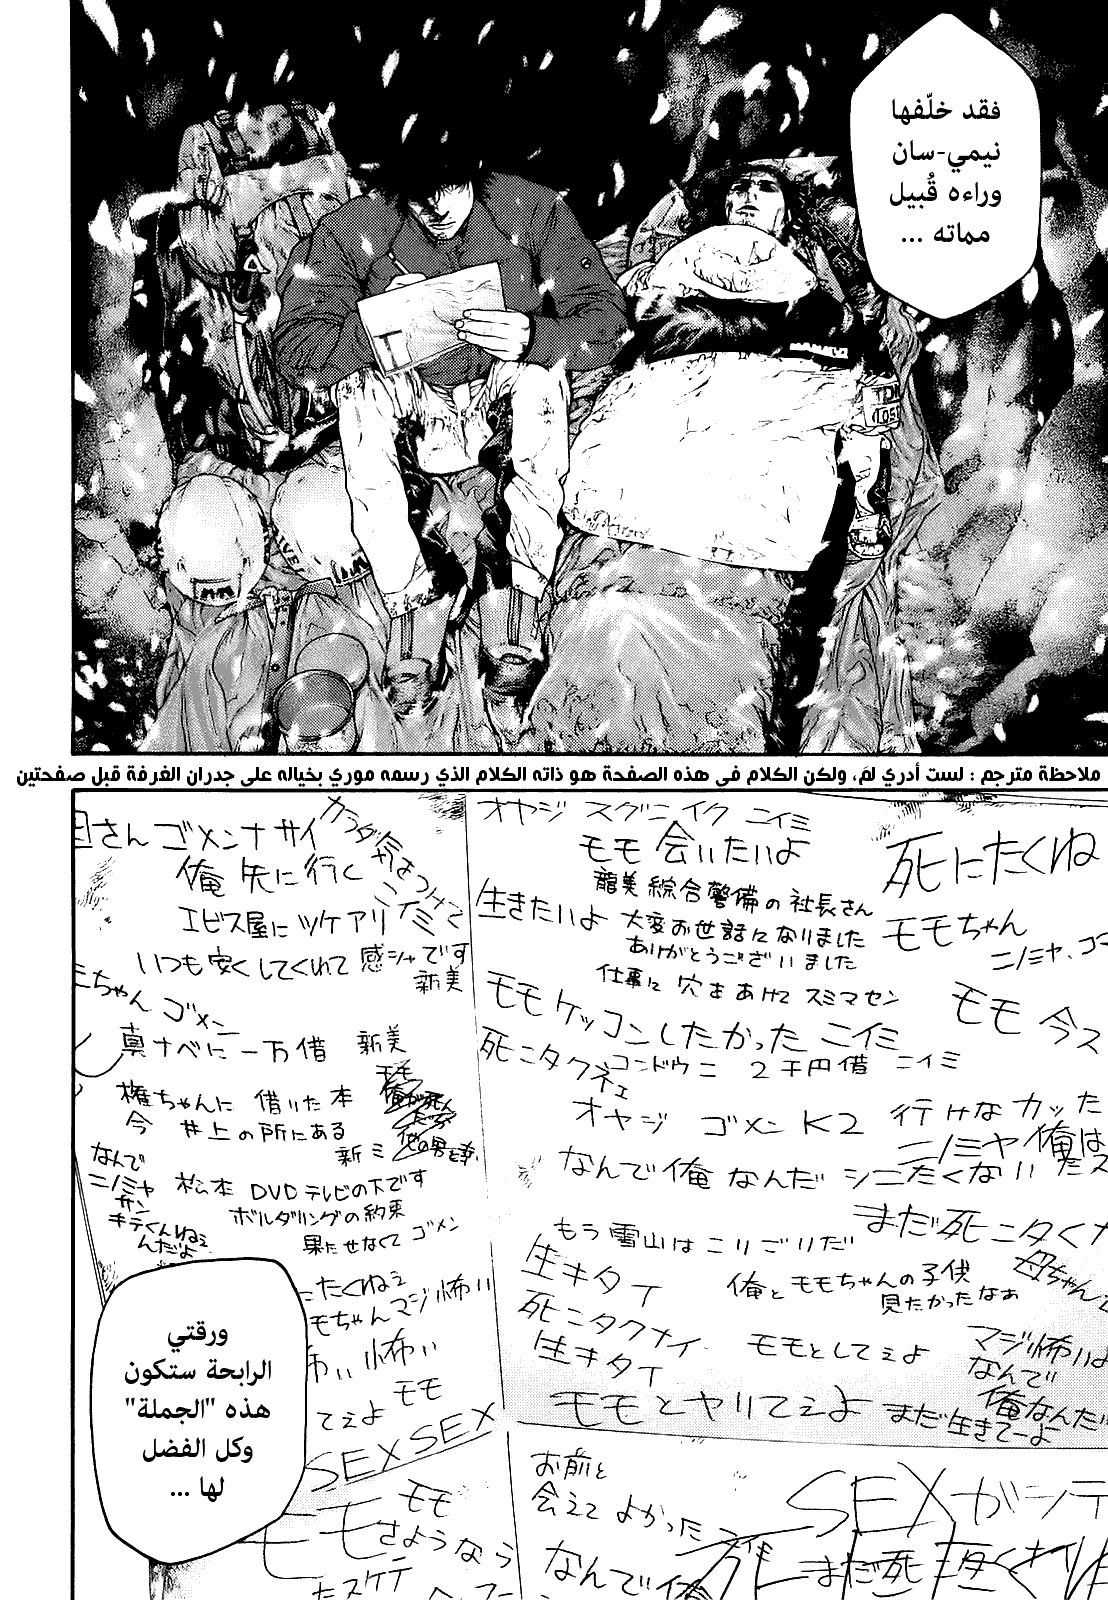 فقد خلّفها
نيمي-سان
وراءه قُبيل
مماته ...
ملاحظة مترجم : لست أدري لمَ، ولكن الكلام في هذه الصفحة هو ذاته الكلام الذي رسمه موري بخياله على جدران الغرفة قبل صفحتين
オヤジ スグニイク ニイミ
モモ 会いたいよ
死にたくね
カラダに気をつけて
さん ゴメンナサイ
俺 先に行く
ニイミ
龍美綜合警備の社長さん
生きたいよ 大変お世話になりました
ありがとうございました
モモちゃん
ニノミヤ、ゴ
エビス屋に ツケアリ
いつも安くしてくれて 感シャです
新美
仕事に 穴をあけて スミマセン
モモ ケッコンしたかった ニイミ
モモ 今ス
ミちゃん ゴメン
真ナベに 一万借 新美
死ニタクネェ
コンドウニ 2千円借 ニイミ
オヤジ ゴメン K2 行けなカッた
ニノミヤ 俺は
権ちゃんに 借りた本
今 井上の所にある
新ミ
なんで俺なんだ シニたくない
なんで
ニノミヤ
サン
キテくんねぇ
んだよ
松本 DVDテレビの下です
ボルダリングの約束
果たせなくて ゴメン
まだ死ニタくナ
もう雪山はこりごりだ
生キタイ
俺とモモちゃんの子供
見たかったなぁ
母ちゃん
たくねぇ
モちゃんマジ怖い
死ニタクナイ
生キタイ
モモとしてぇよ
マジ怖いよ
なんで
俺なんだ
怖い 怖い
モモ
てぇよ
モモとヤリてぇよ まだ生きてーよ
SEX SEX
モモ
モモ さようなら
たスケテ
お前と
会えて よかった
なんで俺
SEXがシテ
まだ死
ورقتي
الرابحة ستكون
هذه "الجملة"
وكل الفضل
لها ...